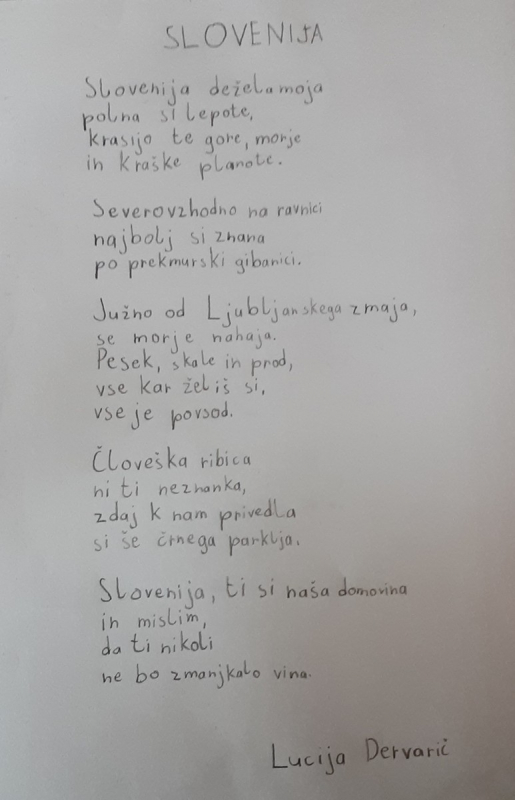 SLOVENIJA
Slovenija dežela moja
polna si lepote,
krasijo te gore, morje
in kraške planote.
Severovzhodno na ravnici
najbolj si znana
po prekmurski gibanici.
Južno od Ljubljanskega zmaja,
se morje nahaja.
Pesek, skale in prod,
vse kar želiš si,
vse je povsod.
Človeška ribica
ni ti neznanka,
zdaj k nam privedla
si še črnega parklja.
Slovenija, ti si naša domovina
in mislim,
da ti nikoli
ne bo zmanjkalo vina.
Lucija Dervarič